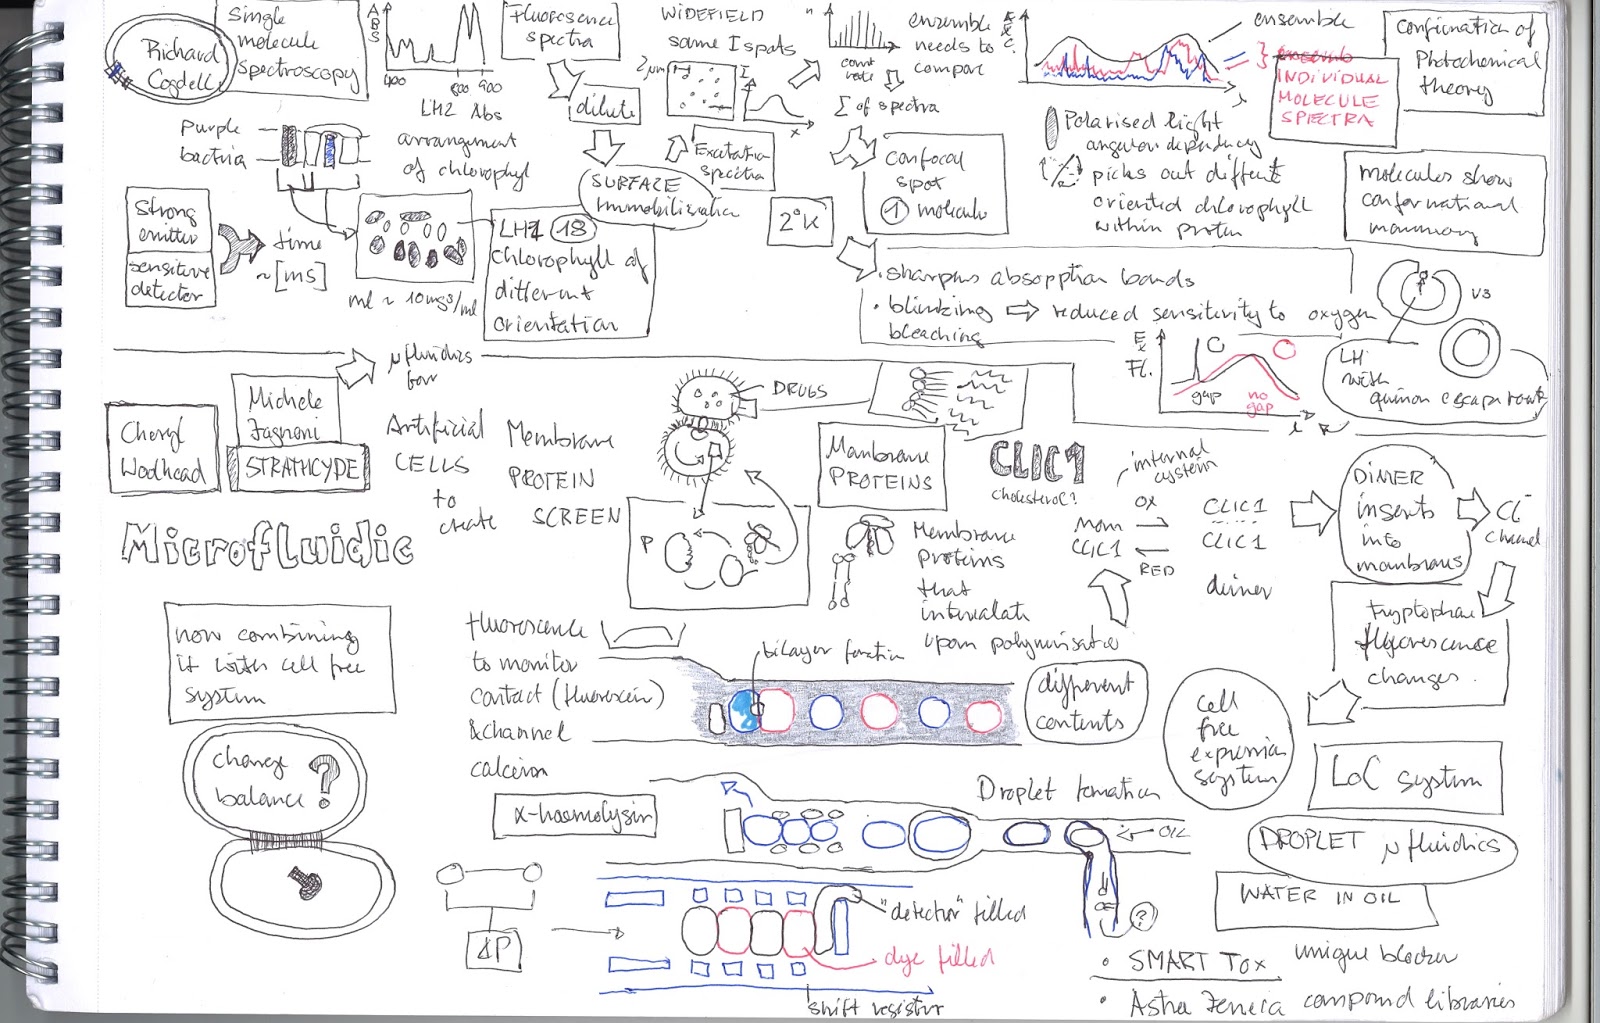 Richard
Cogdell
Single
molecule
Spectroscopy
ABS
400
800 900
LH2 Abs
Fluorescence
spectra
dilute
WIDEFIELD
same I spots
2μm
I
x
Excitation
spectra
n
count
rate
ensemble
needs to
compare
Σ of spectra
EXC.
λ
ensemble
INDIVIDUAL
MOLECULE
SPECTRA
Confirmation of
Photochemical
theory
purple
bacteria
arrangement
of chlorophyl
SURFACE
Immobilization
Confocal
spot
1 molecule
2°K
Polarised light
angular dependency
picks out different
oriented chlorophyll
within protein
molecules show
conformational
memory
Strong
emitter
sensitive
detector
time
~[ms]
ml ~ 10mgs/ml
LH2 18
chlorophyll of
different
orientation
sharpens absorption bands
• blinking ⇨ reduced sensitivity to oxygen
bleaching
V3
LH
with
quinon escape route
Ex
Fl.
gap
no
gap
λ
μfluidics
for
Cheryl
Woodhead
Michele
Zagnoni
STRATHCYDE
Artificial
CELLS
to
create
Membrane
PROTEIN
SCREEN
DRUGS
P
Membrane
PROTEINS
CLIC1
cholesterol?
internal
cystein
Mom
CLIC1
OX
RED
CLIC1
CLIC1
dimer
DIMER
inserts
into
membrane
Cl-
channel
Microfluidic
Membrane
proteins
that
intercalate
upon polymerisation
Tryptophan
fluorescence
changes.
now combining
it with cell free
system
fluorescence
to monitor
contact (fluorescein)
& channel
calcein
bilayer formation
different
contents
Cell
free
expression
system
LoC system
change
balance ?
α-haemolysin
Droplet formation
OIL
DROPLET μfluidics
WATER IN OIL
ΔP
"detector" filled
dye filled
shift resistor
?
• SMART Tox unique blocker
• Astra Zeneca compound libraries